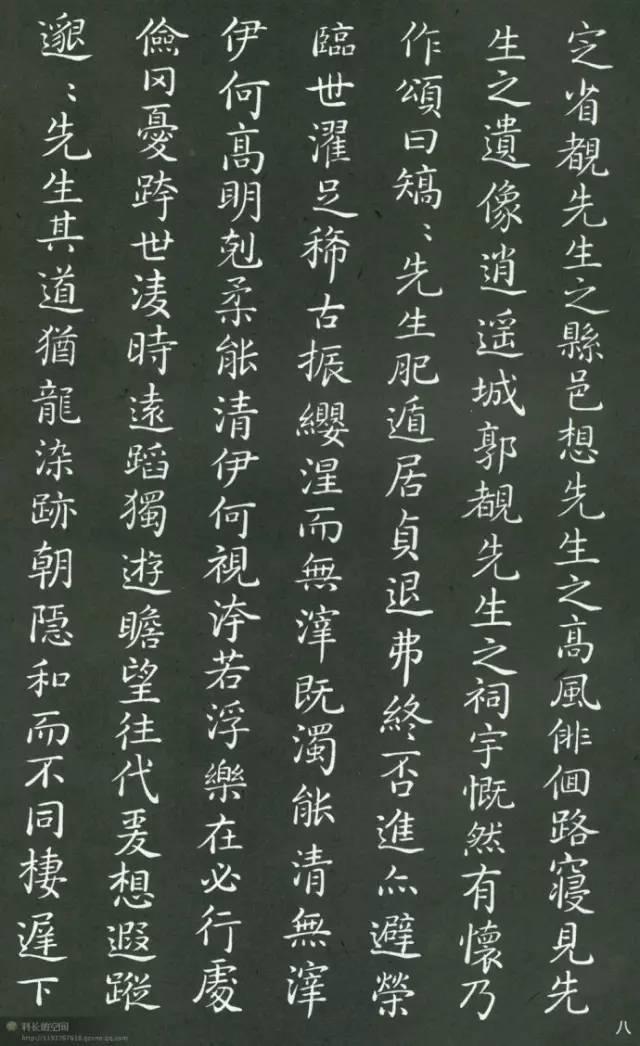 定省覩先生之縣邑想先生之高風俳佪路寢見先
生之遺像逍遥城郭覩先生之祠宇慨然有懷乃
作頌曰矯〻先生肥遁居貞退弗終否進亦避榮
臨世濯足稀古振纓涅而無滓既濁能清無滓
伊何高明剋柔能清伊何視洿若浮樂在必行處
儉罔憂跨世淩時遠蹈獨遊瞻望往代爰想遐蹤
邈〻先生其道猶龍染跡朝隱和而不同棲遲下
八
科长的空间